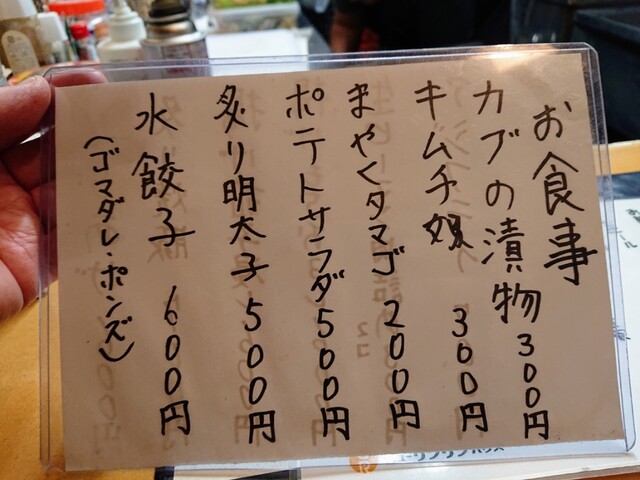 お食事
カブの漬物 300円
キムチ奴 300円
まやくタマゴ 200円
ポテトサラダ 500円
炙り明太子 500円
水餃子 600円
(ゴマダレ・ポンズ)